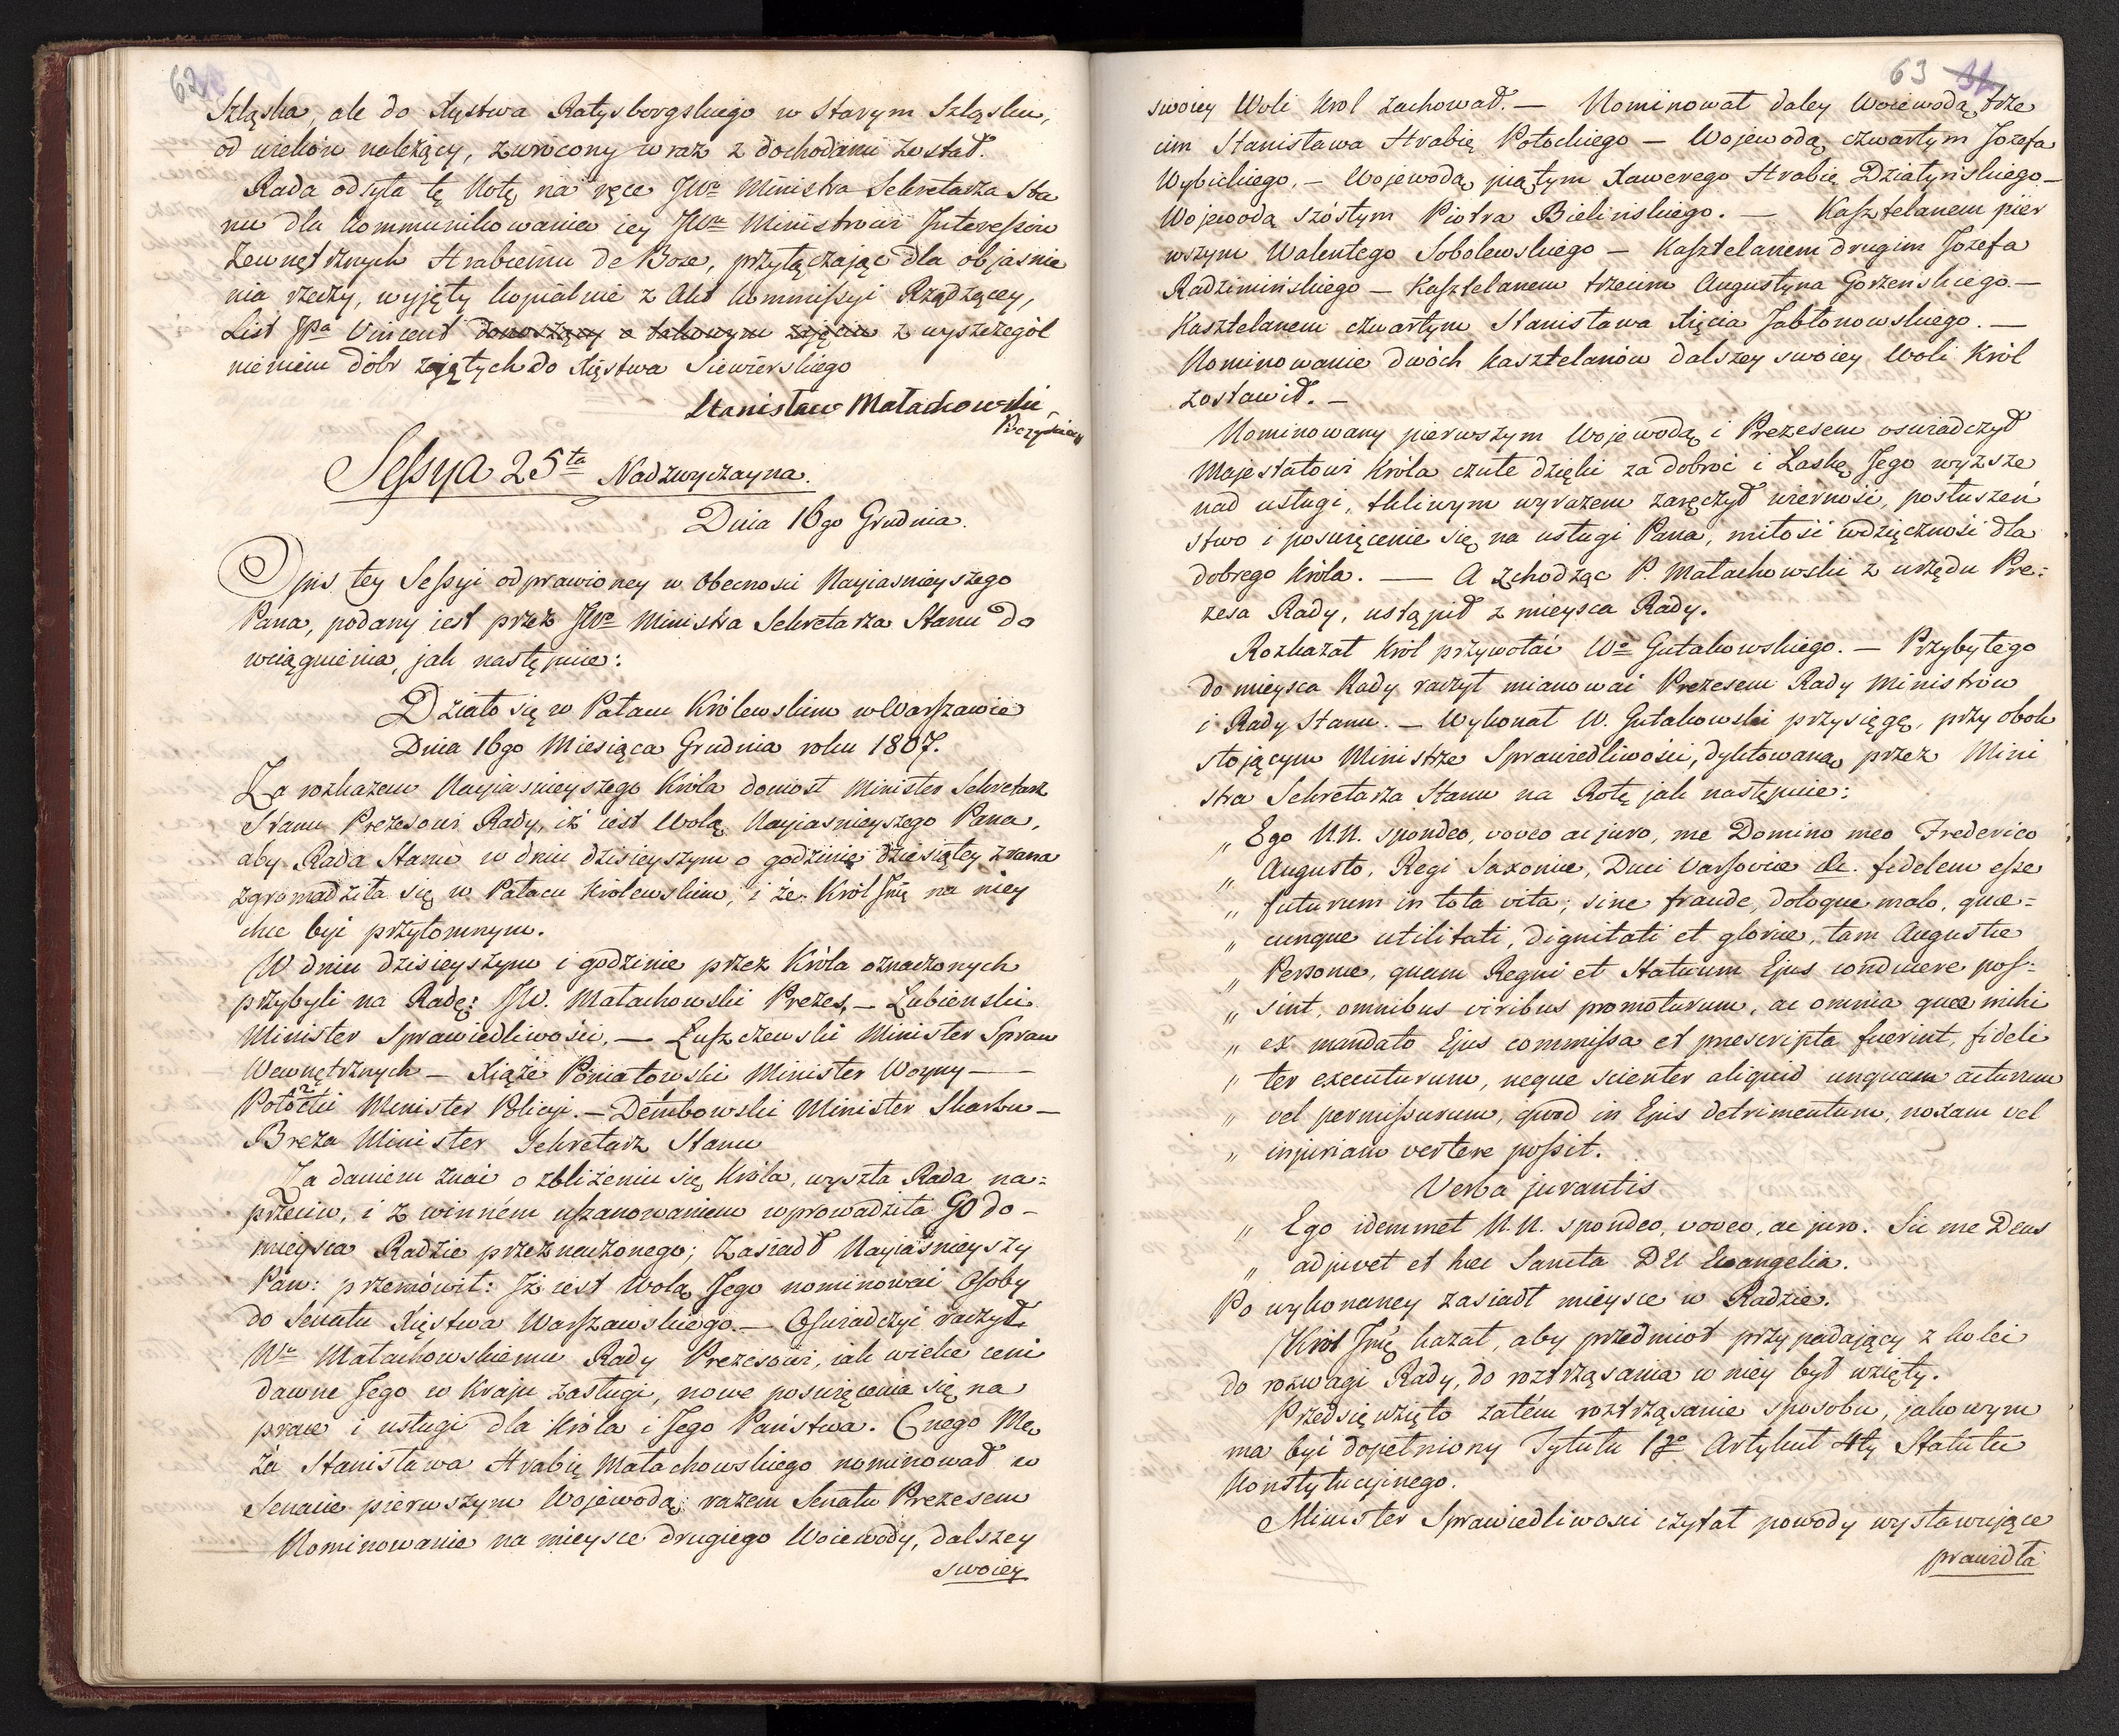 62
Szląska, ale do Xięstwa Ratysborgskiego w Starym Szląsku,
od wieków należący, zwrócony wraz z dochodami został.
Rada odsyła tę Notę na ręce JWo Ministra Sekretarza Sta
nu dla kommunikowania iey JWu Ministrowi Interessów
Zewnętrznych Hrabiemu de Boze, przyłączając dla objasnie
nia rzeczy, wyjęty kopialnie z Akt Kommissyi Rządzącey,
List JPa Vincent donoszący o takowym zajęciu z wyszczegól
nieniem dóbr zajętych do Xięstwa Siewierskiego
Stanisław Małachowski
Prezyduiący
Sessya 25ta Nadzwyczayna.
Dnia 16go Grudnia.
Opis tey Sessyi odprawioney w Obecnosci Nayiasnieyszego
Pana, podany iest przez JWo Ministra Sekretarza Stanu do
wciągnienia, jak następuie:
Działo się w Pałacu Królewskim w Warszawie
Dnia 16go Miesiąca Grudnia roku 1807.
Za rozkazem Nayiasnieyszego Króla doniosł Minister Sekretarz
Stanu Prezesowi Rady, iż iest Wolą Nayiasnieyszego Pana,
aby Rada Stanu w dniu dzisieyszym o godzinie dziesiątey zrana
zgromadziła się w Pałacu Królewskim, i że Król Jmć na niey
chce być przytomnym.
W dniu dzisieyszym i godzinie przez Króla oznaczonych
przybyli na Radę: JW. Małachowski Prezes, — Łubienski
Minister Sprawiedliwości, — Łuszczewski Minister Spraw
Wewnętrznych — Xiąże Poniatowski Minister Woyny —
Potocki Minister Policyi. — Dembowski Minister Skarbu —
Breza Minister Sekretarz Stanu
Za daniem znać o zbliżeniu się Króla, wyszła Rada na=
przeciw, i z winném uszanowaniem wprowadziła Go do —
mieysca Radzie przeznaczonego; Zasiadł Nayiasnieyszy
Pan: przemówił: Iż iest Wolą Jego nominować Osoby
do Senatu Xięstwa Warszawskiego. — Oswiadczyć raczył
Wu Małachowskiemu Rady Prezesowi, iak wielce ceni
dawne Jego w Kraju zasługi, nowe poswięcenia się na
prace i usługi dla Króla i Jego Państwa. Cnego Mę
ża Stanisława Hrabię Małachowskiego nominował w
Senacie pierwszym Wojewodą; razem Senatu Prezesem
Nominowanie na mieysce drugiego Woiewody, dalszey
swoiey
63 31
swoiey Woli Krol zachował. — Nominował daley Woiewodą trze
cim Stanisława Hrabię Potockiego — Wojewodą czwartym Jozefa
Wybickiego, — Wojewodą piątym Xawerego Hrabię Działyńskiego —
Wojewodą szóstym Piotra Bielińskiego. — Kasztelanem pier
wszym Walentego Sobolewskiego — Kasztelanem drugim Jozefa
Radzimińskiego — Kasztelanem trzecim Augustyna Gorzenskiego. —
Kasztelanem czwartym Stanisława Xięcia Jabłonowskiego. —
Nominowanie dwóch Kasztelanów dalszey swoiey Woli Król
zostawił. —
Nominowany pierwszym Wojewodą i Prezesem oswiadczył
Majestatowi Króla czułe dzięki za dobroć i Łaskę Jego wyższe
nad usługi, tkliwym wyrazem zaręczył wierność, posłuszeń
stwo i poswięcenie się na usługi Pana, miłość wdzięczność dla
dobrego Króla. — A zchodząc P. Małachowski z urzędu Pre=
zesa Rady, ustąpił z mieysca Rady.
Rozkazał Król przywołać Wo Gutakowskiego. — Przybyłego
do mieysca Rady raczył mianować Prezesem Rady Ministrów
i Rady Stanu. — Wykonał W. Gutakowski przysięgę, przy obok
stojącym Ministrze Sprawiedliwości, dyktowaną przez Mini
stra Sekretarza Stanu na Rotę jak następuie:
„ Ego N.N. spondeo, voveo ac juro, me Domino meo Frederico
„ Augusto, Regi Saxoniæ, Duci Varsoviæ &c. fidelem esse
„ futurum in tota vita; sine fraude, doloque malo, quæ=
„ cunque utilitati, dignitati et gloriæ, tam Augustæ
„ Personæ, quam Regni et Statuum Ejus conducere pos=
„ sint, omnibus viribus promoturum, ac omnia quæ mihi
„ ex mandato Ejus commissa et præscripta fuerint, fideli
„ ter executurum, neque scienter aliquid unquam acturum
„ vel permissurum, quod in Ejus detrimentum, noxam vel
„ injuriam vertere possit.
Verba jurantis
„ Ego idemmet N.N. spondeo, voveo, ac juro. Sic me Deus
„ adjuvet et hæc Sancta DEI Evangelia.
Po wykonaney zasiadł mieysce w Radzie.
Król Jmć kazał, aby przedmiot przypadający z kolei
do rozwagi Rady, do roztrząsania w niey był wzięty.
Przedsięwzięto zatém roztrząsanie sposobu, jakowym
ma być dopełniony Tytułu 1go Artykuł 4ty Statutu
Konstytucyinego.
Minister Sprawiedliwosci czytał powody wystawujące
prawidła